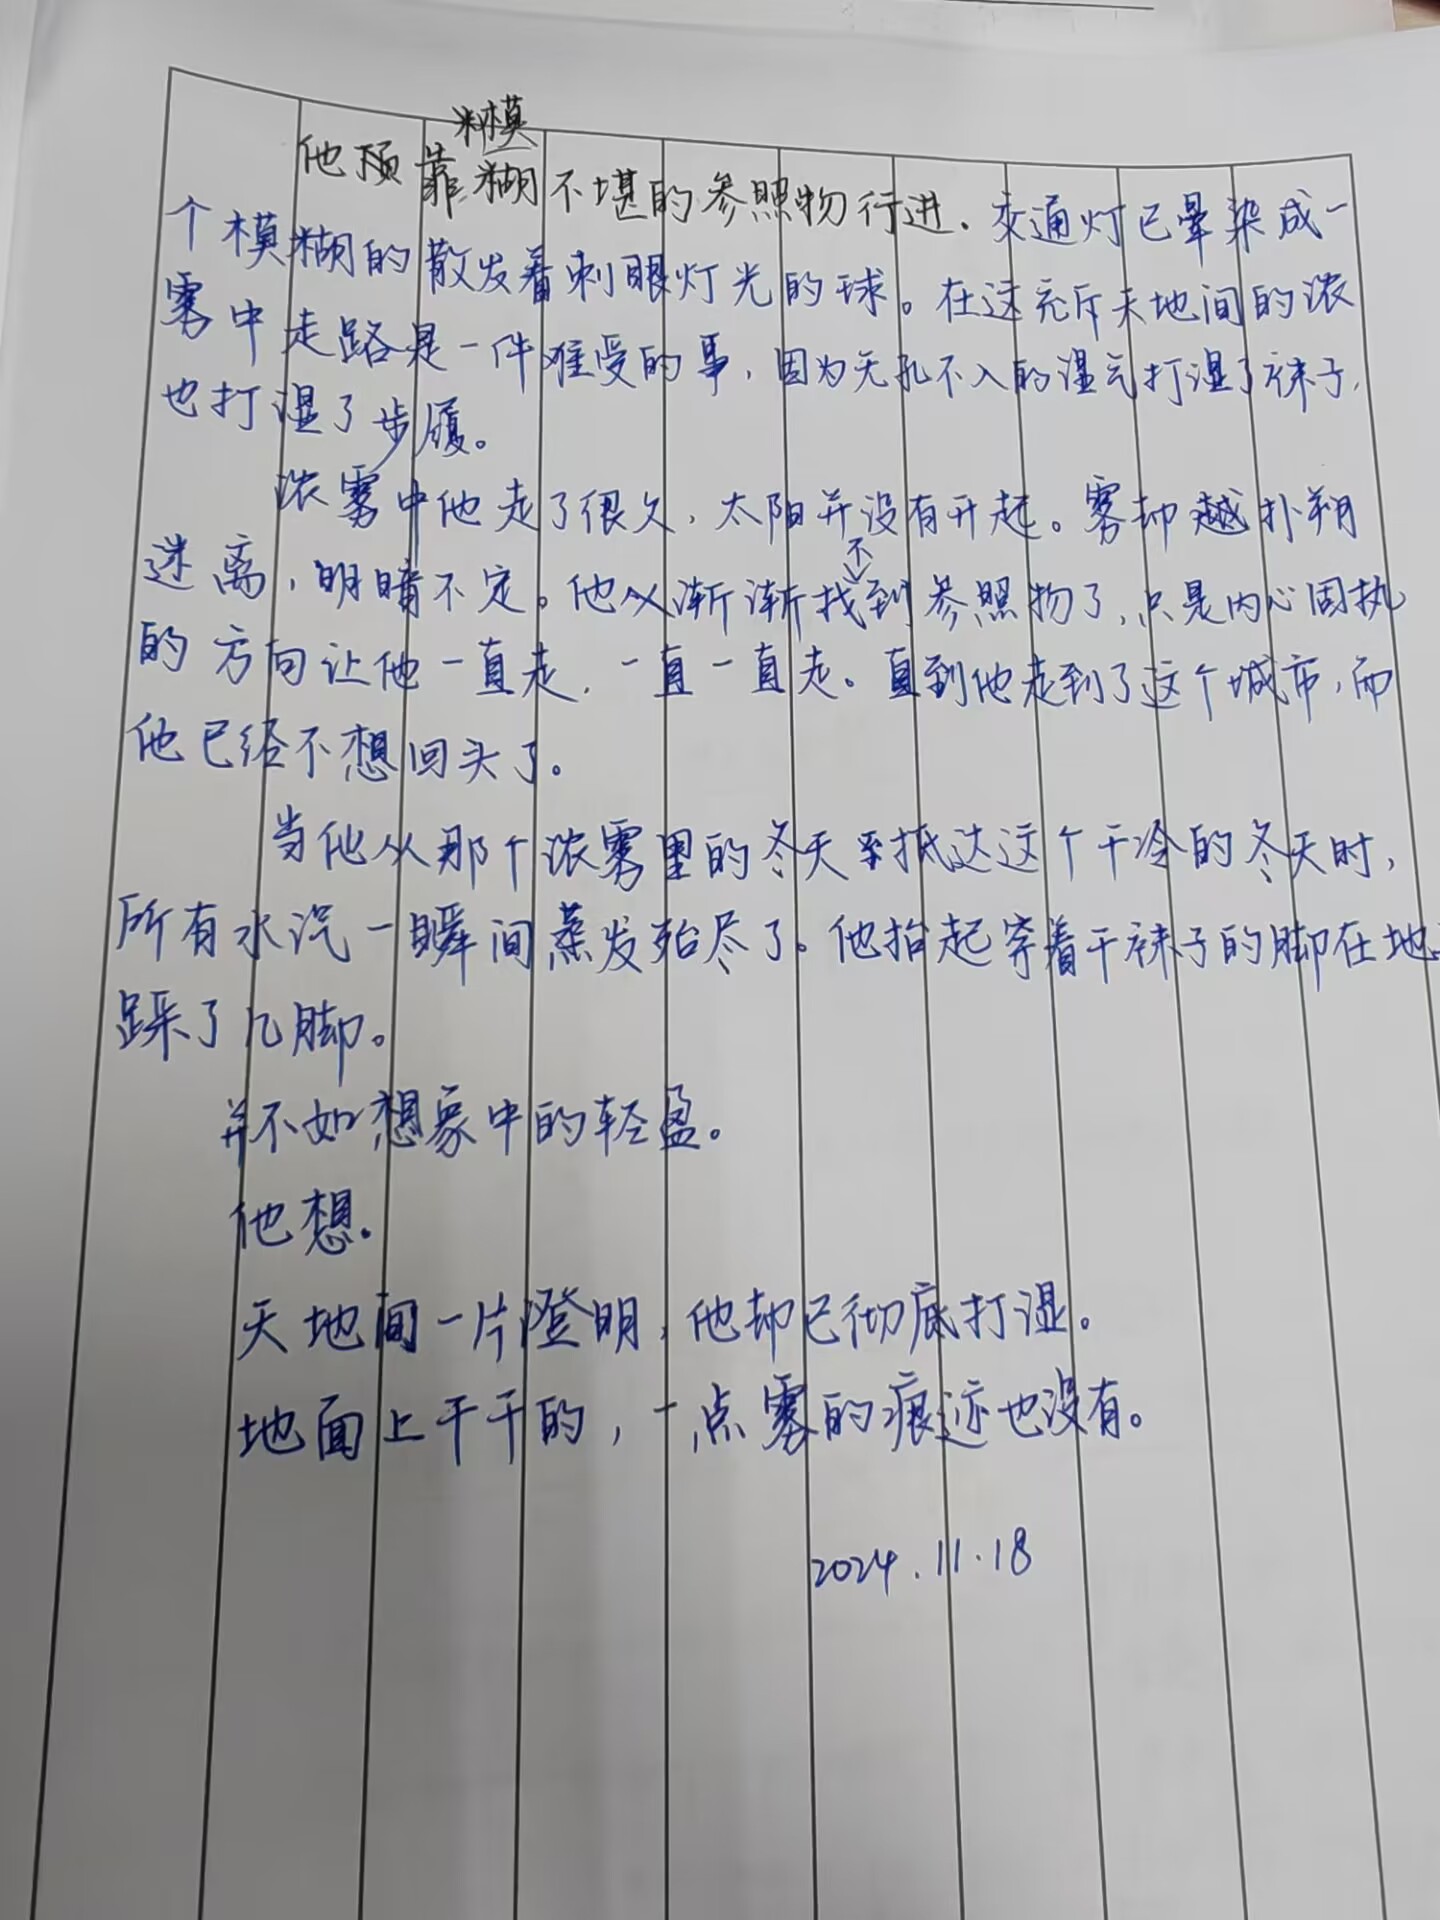 模
他须靠糊不堪的参照物行进.交通灯已晕染成一
个模糊的散发着刺眼灯光的球。在这充斥天地间的浓
雾中走路是一件难受的事,因为无孔不入的湿气打湿了袜子,
也打湿了步履。
浓雾中他走了很久,太阳并没有升起。雾却越扑朔
迷离,明暗不定。他渐渐找不到参照物了,只是内心固执
的方向让他一直走,一直一直走。直到他走到了这个城市,而
他已经不想回头了。
当他从那个浓雾里的冬天抵达这个干冷的冬天时,
所有水汽一瞬间蒸发殆尽了。他抬起穿着干袜子的脚在地
踩了几脚。
并不如想象中的轻盈。
他想.
天地间一片澄明,他却已彻底打湿。
地面上干干的,一点雾的痕迹也没有。
2024.11.18